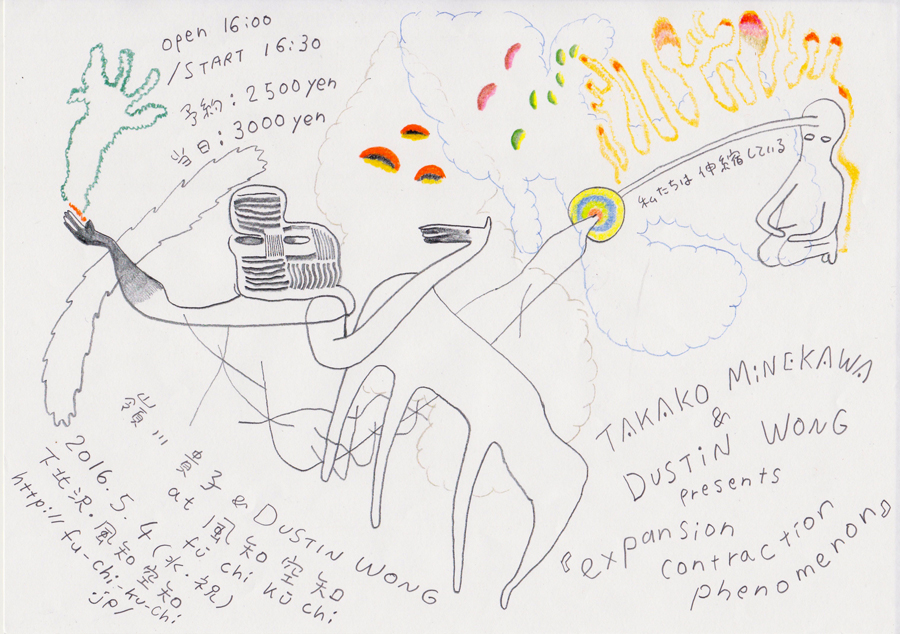 open 16:00
/START 16:30
予約:2500yen
当日:3000yen
私たちは 伸縮している
TAKAKO MiNEKAWA
&
DUSTiN WONG
presents
『expansion
contraction
phenomenon』
嶺川 貴子 & DUSTIN WONG
at 風知空知
fū chi kū chi
2016.5.4(水・祝)
下北沢・風知空知
http://fu-chi-ku-chi
.jp/